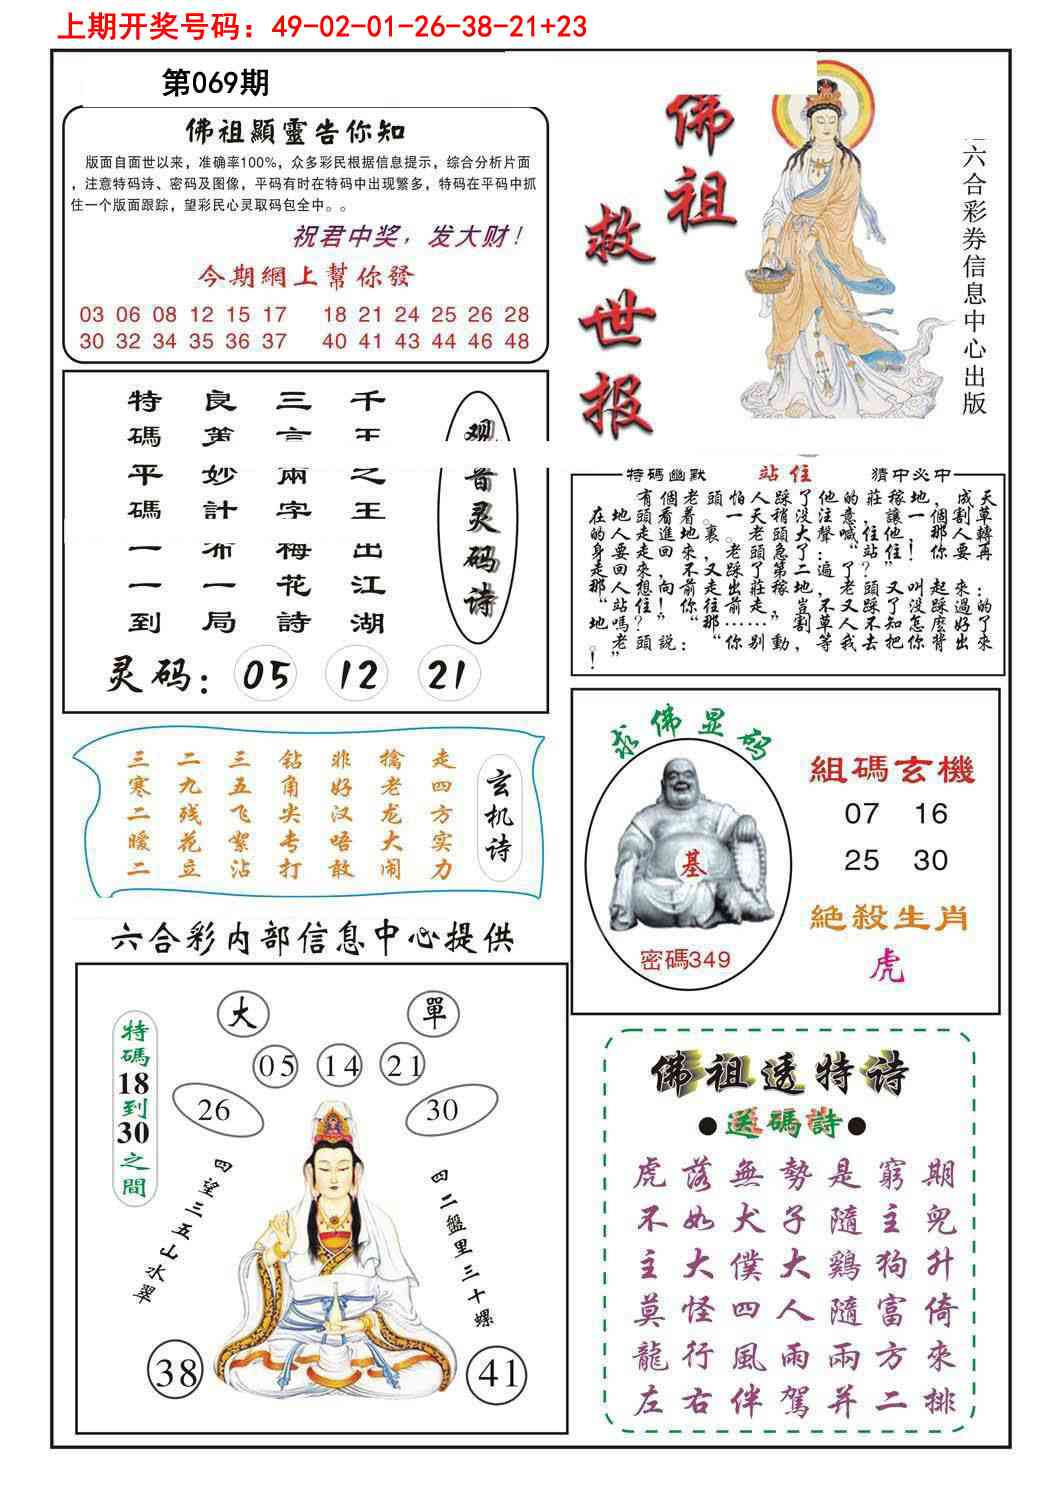 上期开奖号码：49-02-01-26-38-21+23
第069期
佛祖顯靈告你知
版面自面世以来，准确率100%，众多彩民根据信息提示，综合分析片面
，注意特码诗、密码及图像，平码有时在特码中出现繁多，特码在平码中抓
住一个版面跟踪，望彩民心灵取码包全中。。
祝君中奖，发大财！
今期網上幫你發
03 06 08 12 15 17 18 21 24 25 26 28
30 32 34 35 36 37 40 41 43 44 46 48
佛祖
救世报
六合彩券信息中心出版
观音灵码诗
千王之王出江湖
三言兩字梅花詩
良策妙計布一局
特碼平碼一一到
灵码：05 12 21
特碼幽默 站住 猜中必中
有個老頭怕人踩了他的莊稼地，成天
在地頭看着。一天稍没注意，讓一個割草
的人走進地裏，老頭大聲喊“住！那人轉
身要走回來，老頭急了：“站住！你要再
走回來，不又踩了第二遍了？”
那人想向前走出莊稼地，老頭又叫起來：
“站住！你往前走，豈不又踩没踩過的
地嗎？”
玄机诗
走四方实力
擒老龙大闹
非好汉唔敢
钻角尖专打
三五飞絮沾
二九残花立
三寒二暧二
求佛显码
基
密碼349
組碼玄機
07 16
25 30
絶殺生肖
虎
六合彩内部信息中心提供
大 單
05 14 21
26 30
特碼18到30之間
四望三五山水翠
四二盤里三十螺
38 41
佛祖透特诗
●送碼詩●
虎落無勢是窮期
不如犬子隨主兇
主大僕大鷄狗升
莫怪四人隨富倚
龍行風雨兩方來
左右伴駕并二排